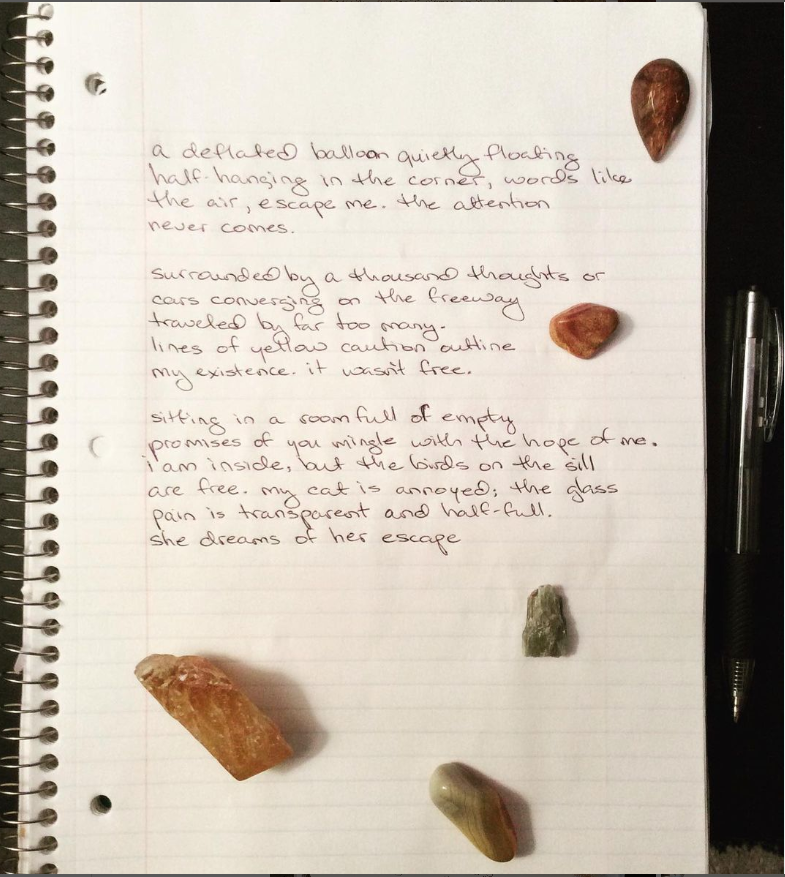 a deflated balloon quietly floating
half-hanging in the corner, words like
the air, escape me. the attention
never comes.
surrounded by a thousand thoughts or
cars converging on the freeway
traveled by far too many.
lines of yellow caution outline
my existence. it wasn't free.
sitting in a room full of empty
promises of you mingle with the hope of me.
i am inside, but the birds on the sill
are free. my cat is annoyed; the glass
pain is transparent and half-full.
she dreams of her escape